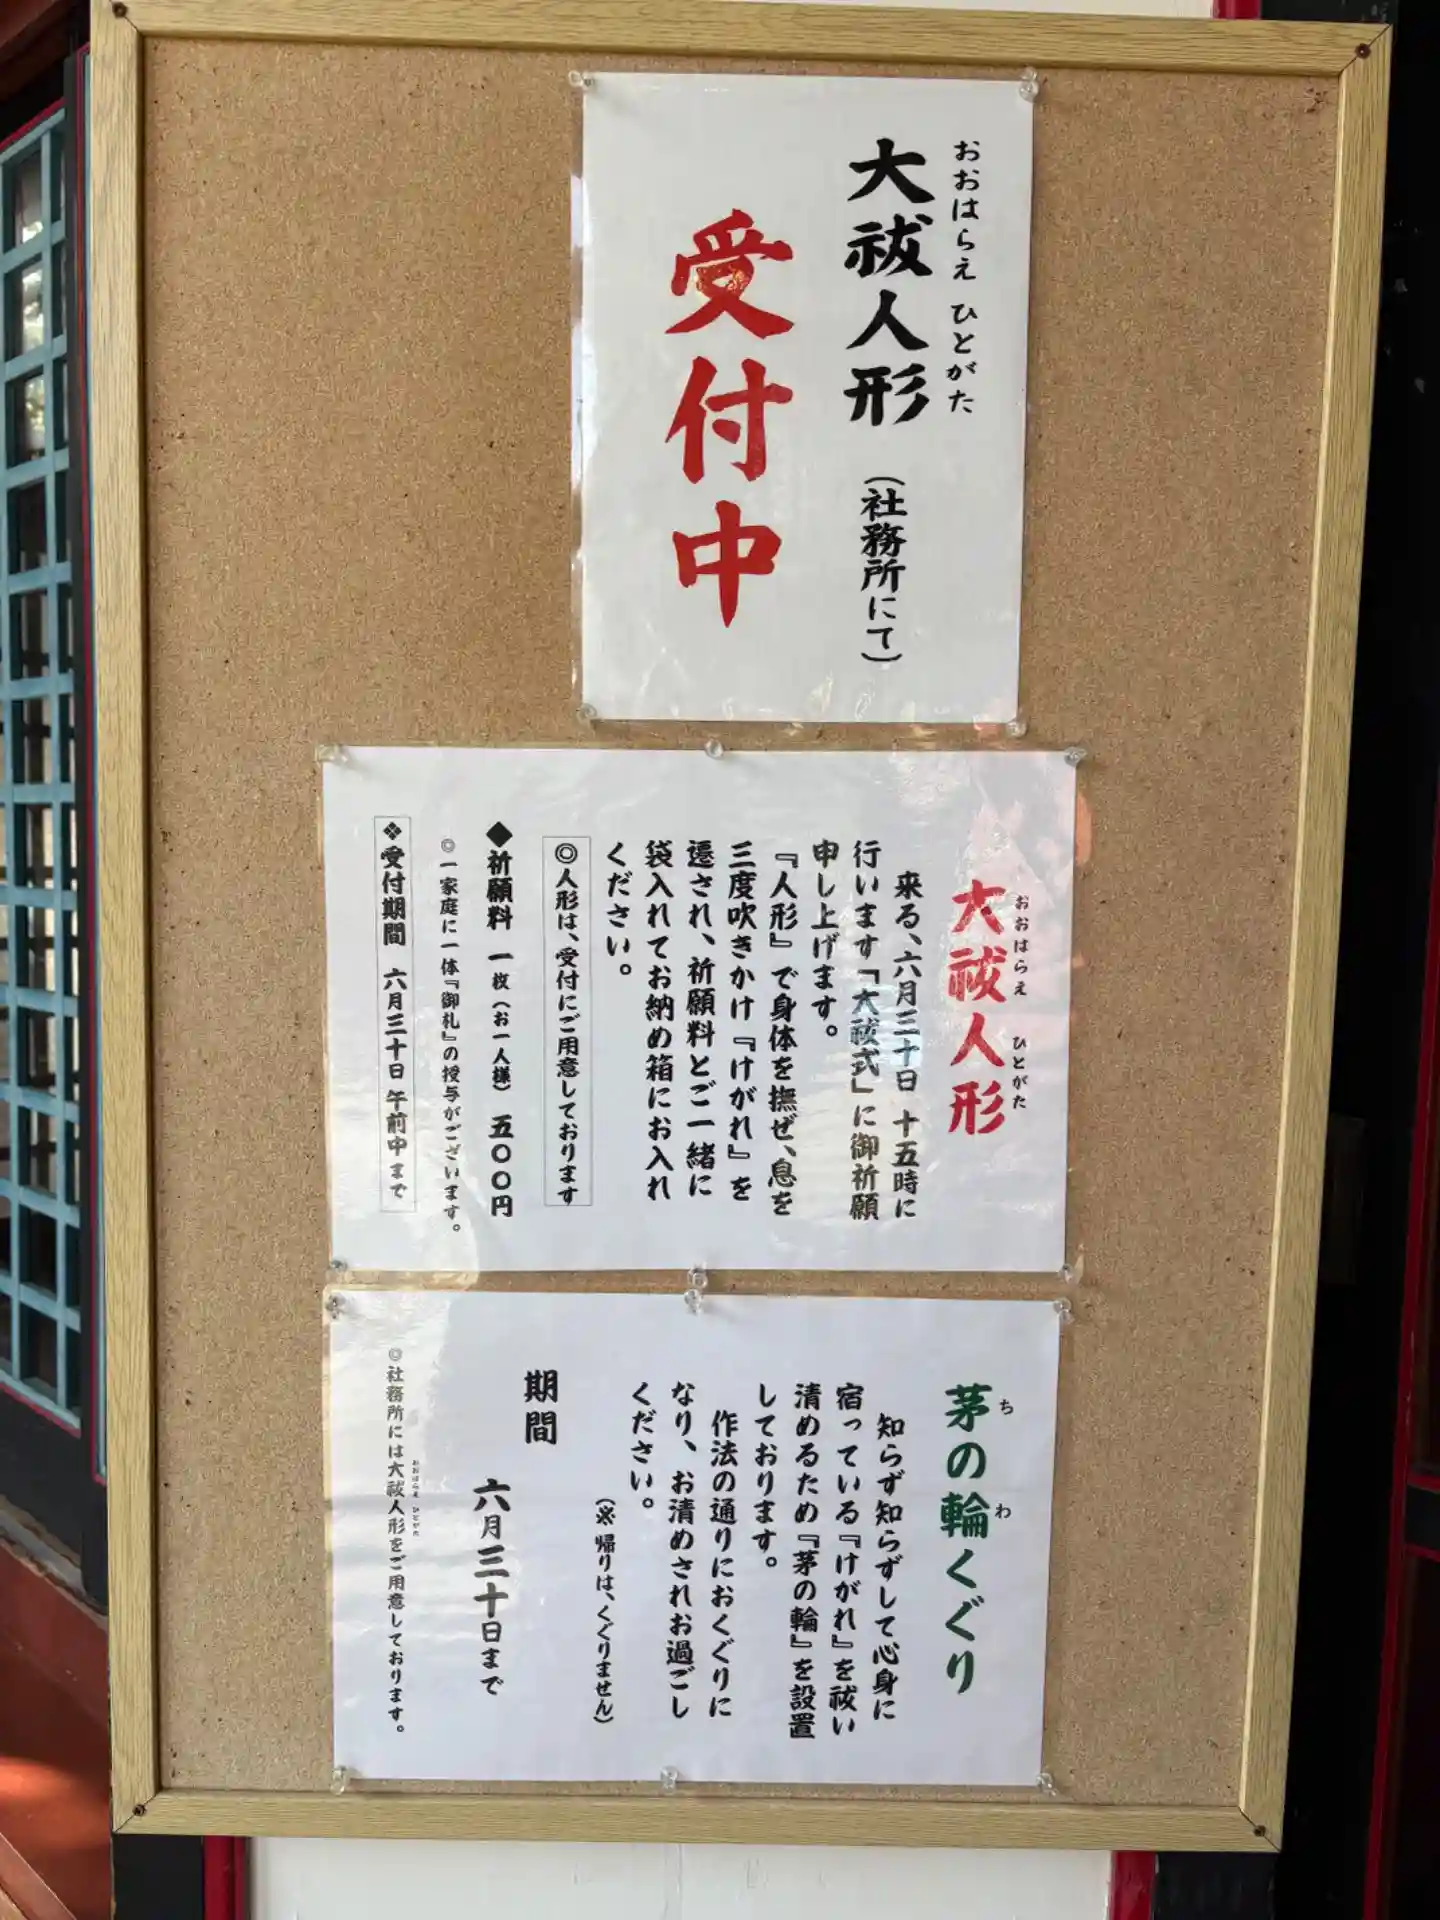 おおはらえ ひとがた
大祓人形 (社務所にて)
受付中
おおはらえ ひとがた
大祓人形
来る、六月三十日 十五時に
行います「大祓式」に御祈願
申し上げます。
『人形』で身体を撫ぜ、息を
三度吹きかけ『けがれ』を
遷され、祈願料とご一緒に
袋入れてお納め箱にお入れ
ください。
◎人形は、受付にご用意しております
◆祈願料 一枚(お一人様) 五〇〇円
◎一家庭に一体『御札』の授与がございます。
❖受付期間 六月三十日 午前中まで
ち わ
茅の輪くぐり
知らず知らずして心身に
宿っている『けがれ』を祓い
清めるため『茅の輪』を設置
しております。
作法の通りにおくぐりに
なり、お清めされお過ごし
ください。
(※帰りは、くぐりません)
期間
六月三十日まで
おおはらえ ひとがた
◎社務所には大祓人形をご用意しております。